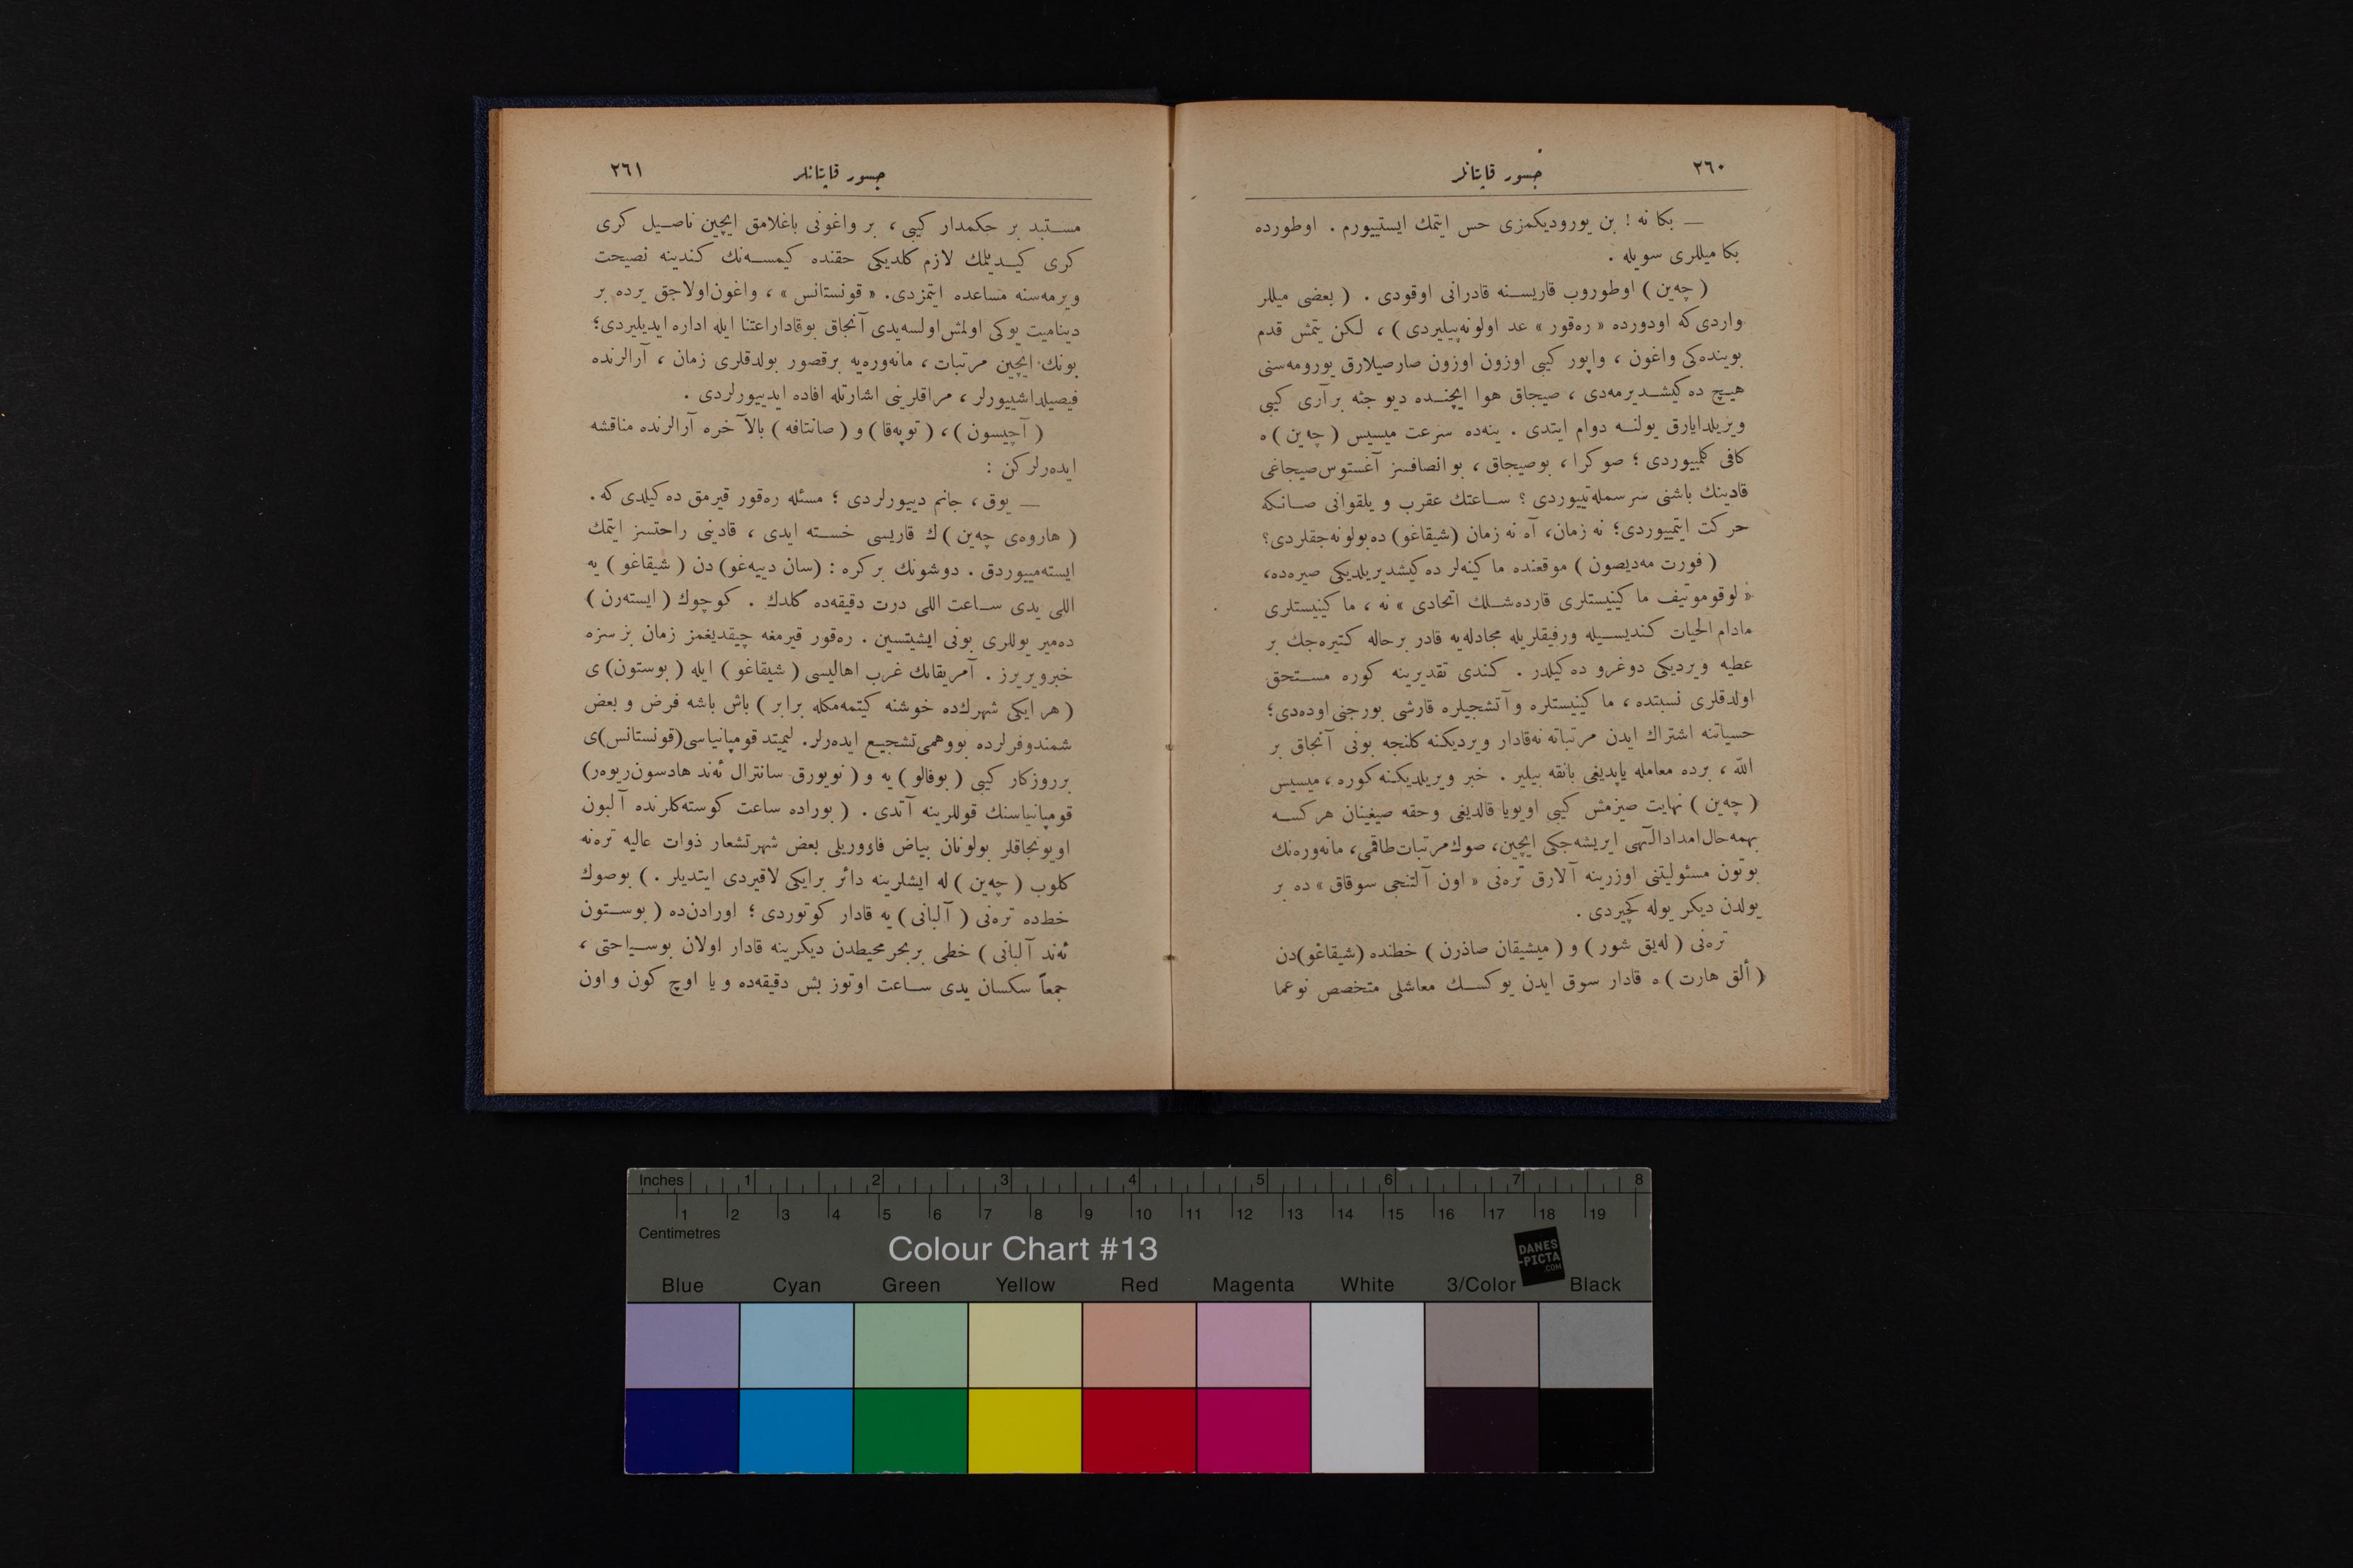 ٢٦٠
جسور قاپتانلر
— بكا نه ! بن يوروديكمزى حس ايتمك ايستييورم . اوطورده
بكا ميللرى سويله .
( چه‌ين ) اوطوروب قاريسنه قادرانى اوقودى . ( بعضى ميللر
واردى كه اودورده « ره‌قور » عد اولونه‌پيليردى ) ، لكن يتمش قدم
بوينده‌كى واغون ، واپور كيبى اوزون اوزون صارصيلارق يورومه‌سنى
هيچ ده كيشديرمه‌دى ، صيجاق هوا ايچنده ديو جثه بر آرى كيبى
ويزيلدايارق يولنه دوام ايتدى . ينه‌ده سرعت ميسيس ( چه‌ين ) ه
كافى كلمييوردى ؛ صوكرا ، بوصيجاق ، بو انصافسز آغستوس صيجاغى
قادينك باشنى سرسمله‌تييوردى ؟ ساعتك عقرب و يلقوانى صانكه
حركت ايتمييوردى؛ نه زمان، آه نه زمان (شيقاغو) ده بولونه‌جقلردى؟
( فورت مه‌ديصون ) موقعنده ماكينه‌لر ده كيشديريلديكى صيره‌ده،
« لوقوموتيف ماكينيستلرى قارده‌شلك اتحادى » نه ، ماكينيستلرى
مادام الحيات كنديسيله ورفيقلريله مجادله‌يه قادر برحاله كتيره‌جك بر
عطيه ويرديكى دوغرو ده كيلدر . كندى تقديرينه كوره مستحق
اولدقلرى نسبتده ، ماكينيستلره و آتشجيلره قارشى بورجنى اوده‌دى؛
حسياتنه اشتراك ايدن مرتباته نه‌قادار ويرديكنه كلنجه بونى آنجاق بر
الله ، برده معامله ياپديغى بانقه بيلير . خبر ويريلديكنه كوره ، ميسيس
( چه‌ين ) نهايت صيزمش كيبى اويويا قالديغى وحقه صيغينان هركسه
بهمه‌حال امدادالهى ايريشه‌جكى ايچين، صوك مرتبات طاقمى، مانه‌وره‌نك
بوتون مسئوليتنى اوزرينه آلارق تره‌نى « اون آلتنجى سوقاق » ده بر
يولدن ديكر يوله كچيردى .
تره‌نى ( له‌يق شور ) و ( ميشيقان صاذرن ) خطنده (شيقاغو)دن
( ألق هارت ) ه قادار سوق ايدن يوكسك معاشلى متخصص نوعما
٢٦١
جسور قاپتانلر
مستبد بر حكمدار كيبى ، بر واغونى باغلامق ايچين ناصيل كرى
كرى كيديلمك لازم كلديكى حقنده كيمسه‌نك كندينه نصيحت
ويرمه‌سنه مساعده ايتمزدى. « قونستانس » ، واغون اولاجق يرده بر
ديناميت يوكى اولمش اولسه‌يدى آنجاق بوقاداراعتنا ايله اداره ايديليردى؛
بونك ايچين مرتبات ، مانه‌وره‌يه برقصور بولدقلرى زمان ، آرالرنده
فيصيلداشييورلر ، مراقلرينى اشارتله افاده ايدييورلردى .
( آچيسون ) ، ( توپه‌قا ) و ( صانتافه ) بالآخره آرالرنده مناقشه
ايده‌رلركن :
— يوق ، جانم دييورلردى ؛ مسئله ره‌قور قيرمق ده كيلدى كه .
( هاروه‌ى چه‌ين ) ك قاريسى خسته ايدى ، قادينى راحتسز ايتمك
ايسته‌مييوردق . دوشونك بركره : (سان دييه‌غو) دن ( شيقاغو ) يه
اللى يدى ساعت اللى درت دقيقه‌ده كلدك . كوچوك ( ايسته‌رن )
ده‌مير يوللرى بونى ايشيتسين . ره‌قور قيرمغه چيقديغمز زمان بز سزه
خبرويريرز . آمريقانك غرب اهاليسى ( شيقاغو ) ايله ( بوستون) ى
( هر ايكى شهرك‌ده خوشنه كيتمه‌مكله برابر ) باش باشه فرض و بعض
شمندوفرلرده بووهمى تشجيع ايده‌رلر. ليميتد قومپانياسى (قونستانس)ى
برروزكار كيبى ( بوفالو ) يه و ( نويورق سانترال ئه‌ند هادسون ريوه‌ر)
قومپانياسنك قوللرينه آتدى . ( بوراده ساعت كوسته‌كلرنده آلتون
اويونجاقلر بولونان بياض فاوريلى بعض شهرتشعار ذوات عاليه تره‌نه
كلوب ( چه‌ين ) له ايشلرينه دائر برايكى لاقيردى ايتديلر . ) بوصوك
خط‌ده تره‌نى ( آلبانى ) يه قادار كوتوردى ؛ اورادن‌ده ( بوستون
ئه‌ند آلبانى ) خطى بربحرمحيطدن ديكرينه قادار اولان بوسياحتى ،
جمعاً سكسان يدى ساعت اوتوز بش دقيقه‌ده و يا اوچ كون و اون
Inches 1 2 3 4 5 6 7 8
1 2 3 4 5 6 7 8 9 10 11 12 13 14 15 16 17 18 19
Centimetres
Colour Chart #13
DANES
-PICTA
.COM
Blue Cyan Green Yellow Red Magenta White 3/Color Black